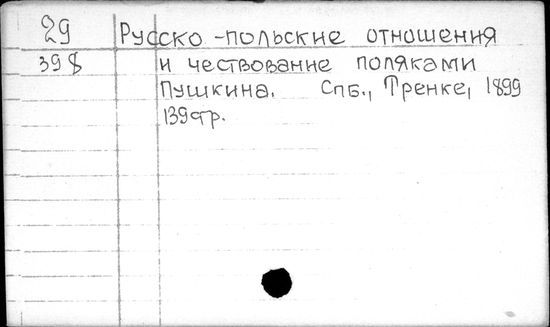 29 Русско-польские отношения
398 и чествование поляками
Пушкина. Спб., Тренке, 1899
139стр.